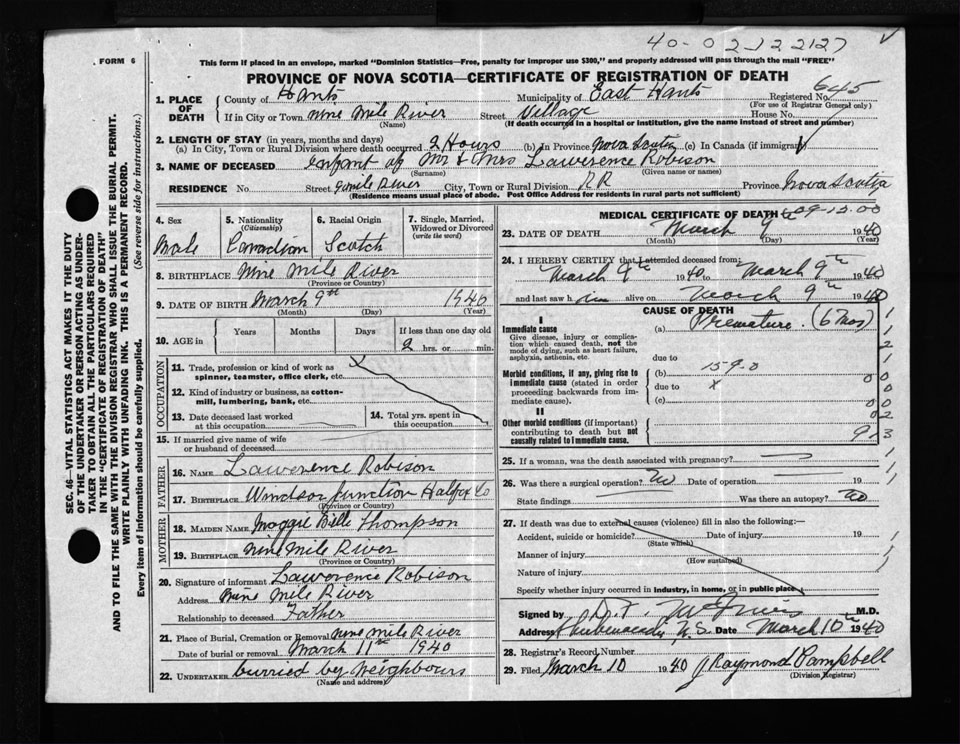 40-02-122127
FORM 6
This form if placed in an envelope, marked "Dominion Statistics—Free, penalty for improper use $300," and properly addressed will pass through the mail "FREE"
PROVINCE OF NOVA SCOTIA—CERTIFICATE OF REGISTRATION OF DEATH
SEC. 46—VITAL STATISTICS ACT MAKES IT THE DUTY
OF THE UNDERTAKER OR PERSON ACTING AS UNDER-
TAKER TO OBTAIN ALL THE PARTICULARS REQUIRED
IN THE "CERTIFICATE OF REGISTRATION OF DEATH"
AND TO FILE THE SAME WITH THE DIVISION REGISTRAR WHO SHALL ISSUE THE BURIAL PERMIT.
WRITE PLAINLY WITH UNFADING INK. THIS IS A PERMANENT RECORD.
Every item of information should be carefully supplied. (See reverse side for instructions.)
1. PLACE OF DEATH
County of Hants Municipality of East Hants Registered No. 645
(For use of Registrar General only)
If in City or Town Nine Mile River Street Village House No.
(Name) (If death occurred in a hospital or institution, give the name instead of street and number)
2. LENGTH OF STAY (in years, months and days)
(a) In City, Town or Rural Division where death occurred 2 Hours (b) In Province Nova Scotia (c) In Canada (if immigrant)
3. NAME OF DECEASED Infant of Mr & Mrs Lawerence Robison
(Surname) (Given name or names)
RESIDENCE No. Street 9 mile River City, Town or Rural Division RR Province Nova Scotia
(Residence means usual place of abode. Post Office Address for residents in rural parts not sufficient)
4. Sex
Male
5. Nationality
(Citizenship)
Canadian
6. Racial Origin
Scotch
7. Single, Married,
Widowed or Divorced
(write the word)
8. BIRTHPLACE Nine Mile River
(Province or Country)
9. DATE OF BIRTH March 9th 1940
(Month) (Day) (Year)
10. AGE in
Years Months Days If less than one day old
2 hrs. or min.
OCCUPATION
11. Trade, profession or kind of work as
spinner, teamster, office clerk, etc.
12. Kind of industry or business, as cotton-
mill, lumbering, bank, etc.
13. Date deceased last worked
at this occupation
14. Total yrs. spent in
this occupation
15. If married give name of wife
or husband of deceased
FATHER
16. NAME Lawerence Robison
17. BIRTHPLACE Windsor Junction Halifax Co
(Province or Country)
MOTHER
18. MAIDEN NAME Maggie Belle Thompson
19. BIRTHPLACE Nine Mile River
(Province or Country)
20. Signature of informant Lawerence Robison
Address Nine Mile River
Relationship to deceased Father
21. Place of Burial, Cremation or Removal Nine Mile River
Date of burial or removal March 11th 1940
22. UNDERTAKER burried by Neighbours
(Name and address)
MEDICAL CERTIFICATE OF DEATH
09-15.00
23. DATE OF DEATH March 9 1940
(Month) (Day) (Year)
24. I HEREBY CERTIFY that I attended deceased from:
March 9th 1940 to March 9th 1940
and last saw h im alive on March 9th 1940
CAUSE OF DEATH
I
Immediate cause
Give disease, injury or complica-
tion which caused death, not the
mode of dying, such as heart failure,
asphyxia, asthenia, etc.
(a) Premature. (6 mos)
due to
159.0
Morbid conditions, if any, giving rise to
immediate cause (stated in order
proceeding backwards from im-
mediate cause).
(b)
due to x
(c)
II
Other morbid conditions (if important)
contributing to death but not
causally related to immediate cause.
25. If a woman, was the death associated with pregnancy?
26. Was there a surgical operation? No Date of operation 19
State findings Was there an autopsy? No
27. If death was due to external causes (violence) fill in also the following:—
Accident, suicide or homicide? Date of injury 19
(State which)
Manner of injury
(How sustained)
Nature of injury
Specify whether injury occurred in industry, in home, or in public place
Signed by M.D.
Address Shubenacadie N.S. Date March 10th 1940
28. Registrar's Record Number
29. Filed March 10 1940 J Raymond Campbell
(Division Registrar)